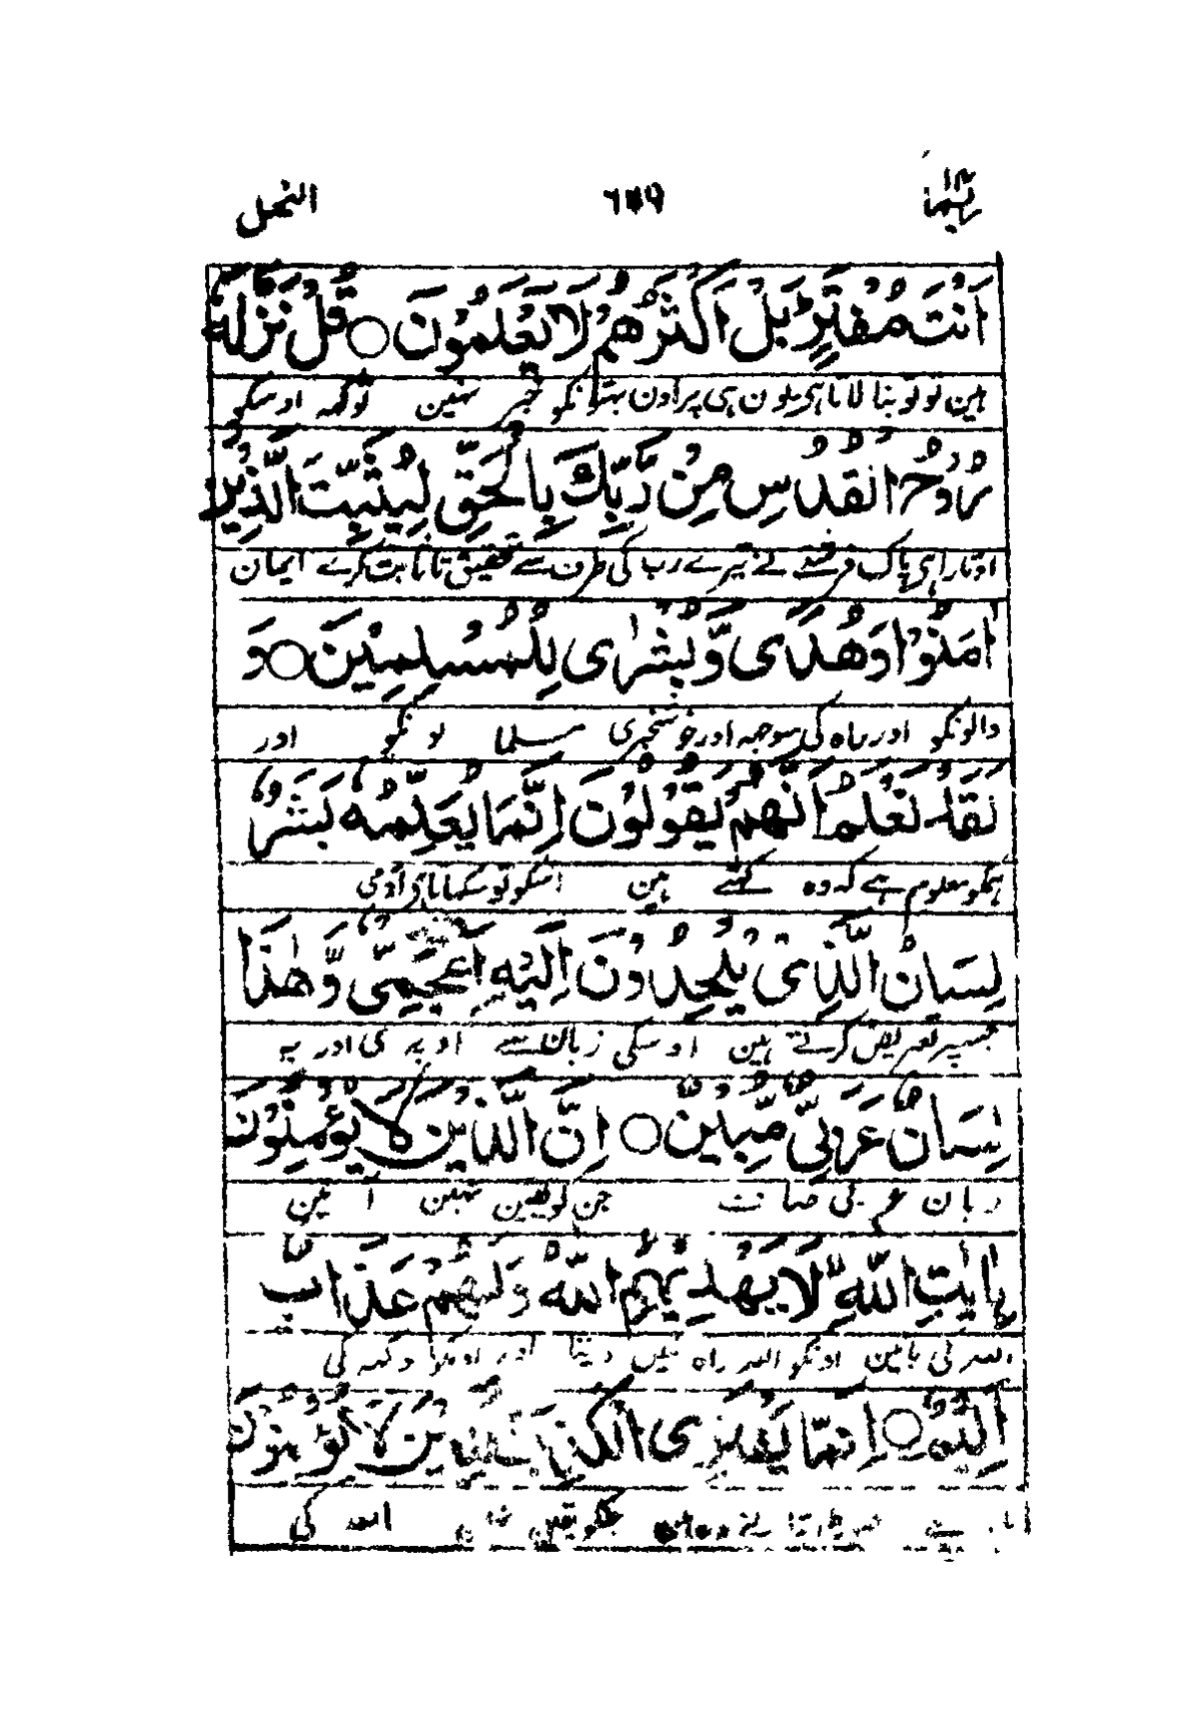 ربما ١٤ ٦٥٩ النحل
اَنْتَ مُفْتَرٍ بَلْ اَكْثَرُهُمْ لَا يَعْلَمُوْنَ ○ قُلْ نَزَّلَهٗ
ہین تو تو بنا لاتا ہی یون ہی پر اون بہتونکو خبر نہین توکہہ اوسکو
رُوْحُ الْقُدُسِ مِنْ رَّبِّكَ بِالْحَقِّ لِيُثَبِّتَ الَّذِيْنَ
اوتارا ہی پاک فرشتے نے تیرے رب کی طرف سے تحقیق تا ثابت کرے ایمان
اٰمَنُوْا وَهُدًى وَّبُشْرٰى لِلْمُسْلِمِيْنَ ○ وَ
والونکو اور راہ کی سوجہہ اور خوشخبری مسلما نونکو اور
لَقَدْ نَعْلَمُ اَنَّهُمْ يَقُوْلُوْنَ اِنَّمَا يُعَلِّمُهٗ بَشَرٌ
ہمکو معلوم ہے کہ وہ کہتے ہین اسکو تو سکہاتا ہی آدمی
لِسَانُ الَّذِىْ يُلْحِدُوْنَ اِلَيْهِ اَعْجَمِىٌّ وَّهٰذَا
جسپر تعریض کرتے ہین اوسکی زبان ہے اوپری اور یہ
لِسَانٌ عَرَبِىٌّ مُّبِيْنٌ ○ اِنَّ الَّذِيْنَ لَا يُؤْمِنُوْنَ
زبان عربی صاف جن کو یقین نہین آ تین
بِاٰيٰتِ اللّٰهِ لَا يَهْدِيْهِمُ اللّٰهُ وَلَهُمْ عَذَابٌ
اللہ کی باتین اونکو اللہ راہ نہین دیتا اور اونکو دکہہ کی
اَلِيْمٌ ○ اِنَّمَا يَفْتَرِى الْكَذِبَ الَّذِيْنَ لَا يُؤْمِنُوْنَ
جنکو یقین نہین اللہ کی